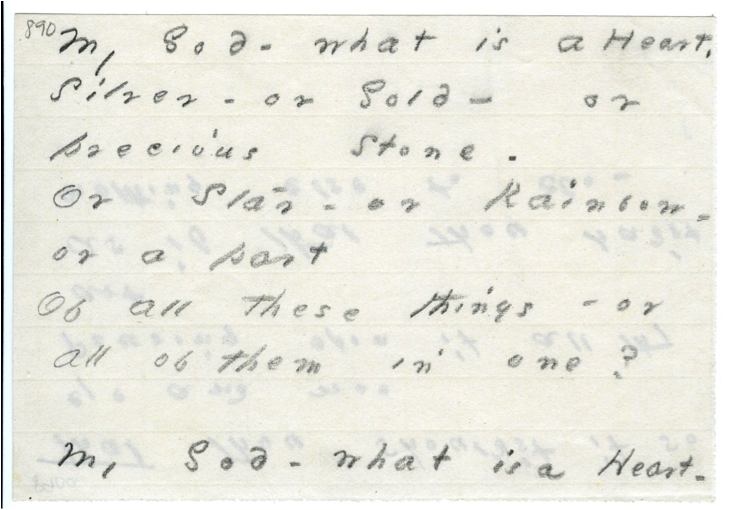 890
My God - what is a Heart.
Silver - or Gold - or
precious Stone.
Or Star - or Rainbow -
or a part
Of all these things - or
all of them in one?
My God - what is a Heart -